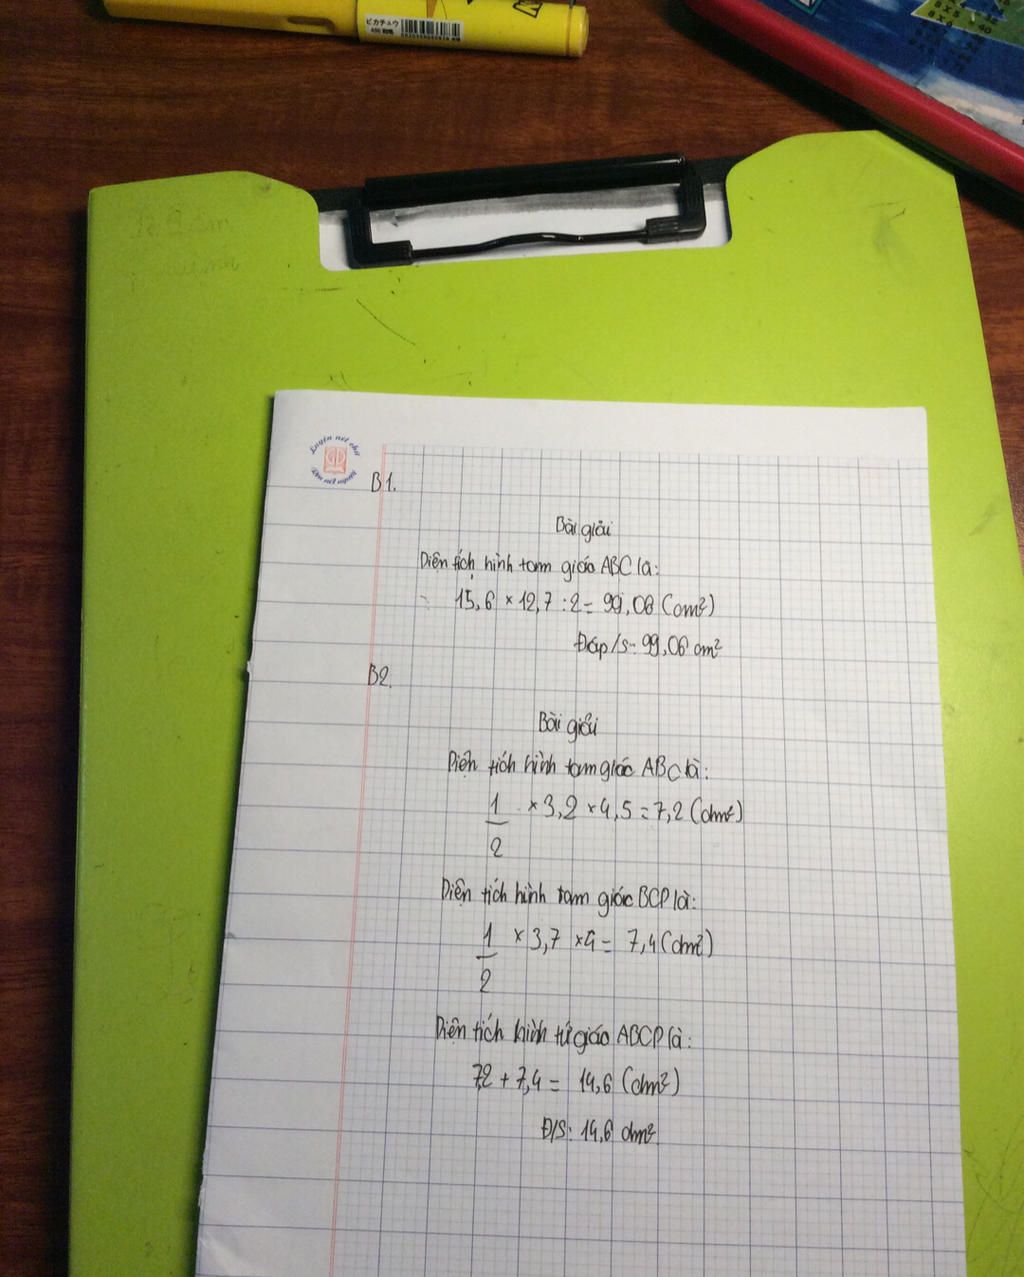 ピカチュウ
B1.
Bài giải
Diện tích hình tam giác ABC là:
15,6 × 12,7 : 2 = 99,06 (cm²)
Đáp/s: 99,06 cm²
B2.
Bài giải
Diện tích hình tam giác ABC là:
1/2 × 3,2 × 4,5 = 7,2 (dm²)
Diện tích hình tam giác BCP là:
1/2 × 3,7 × 4 = 7,4 (dm²)
Diện tích hình tứ giác ABCP là:
7,2 + 7,4 = 14,6 (dm²)
Đ/S: 14,6 dm²
Luyện nét chữ
GD
Rèn nết người